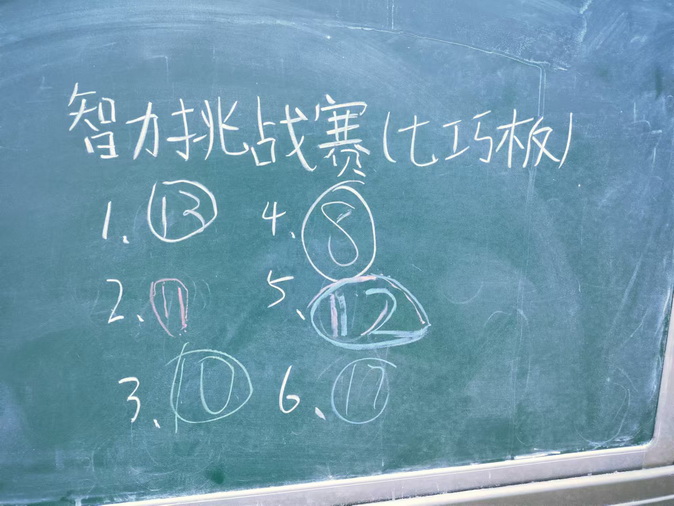 智力挑战赛(七巧板)
1、⑬ 4、⑧
2、⑪ 5、⑫
3、⑩ 6、⑰